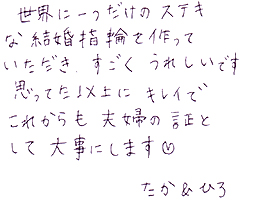 世界に一つだけのステキ
な結婚指輪を作って
いただき、すごくうれしいです
思ってた以上にキレイで
これからも夫婦の証と
して大事にします♡
たか&ひろ